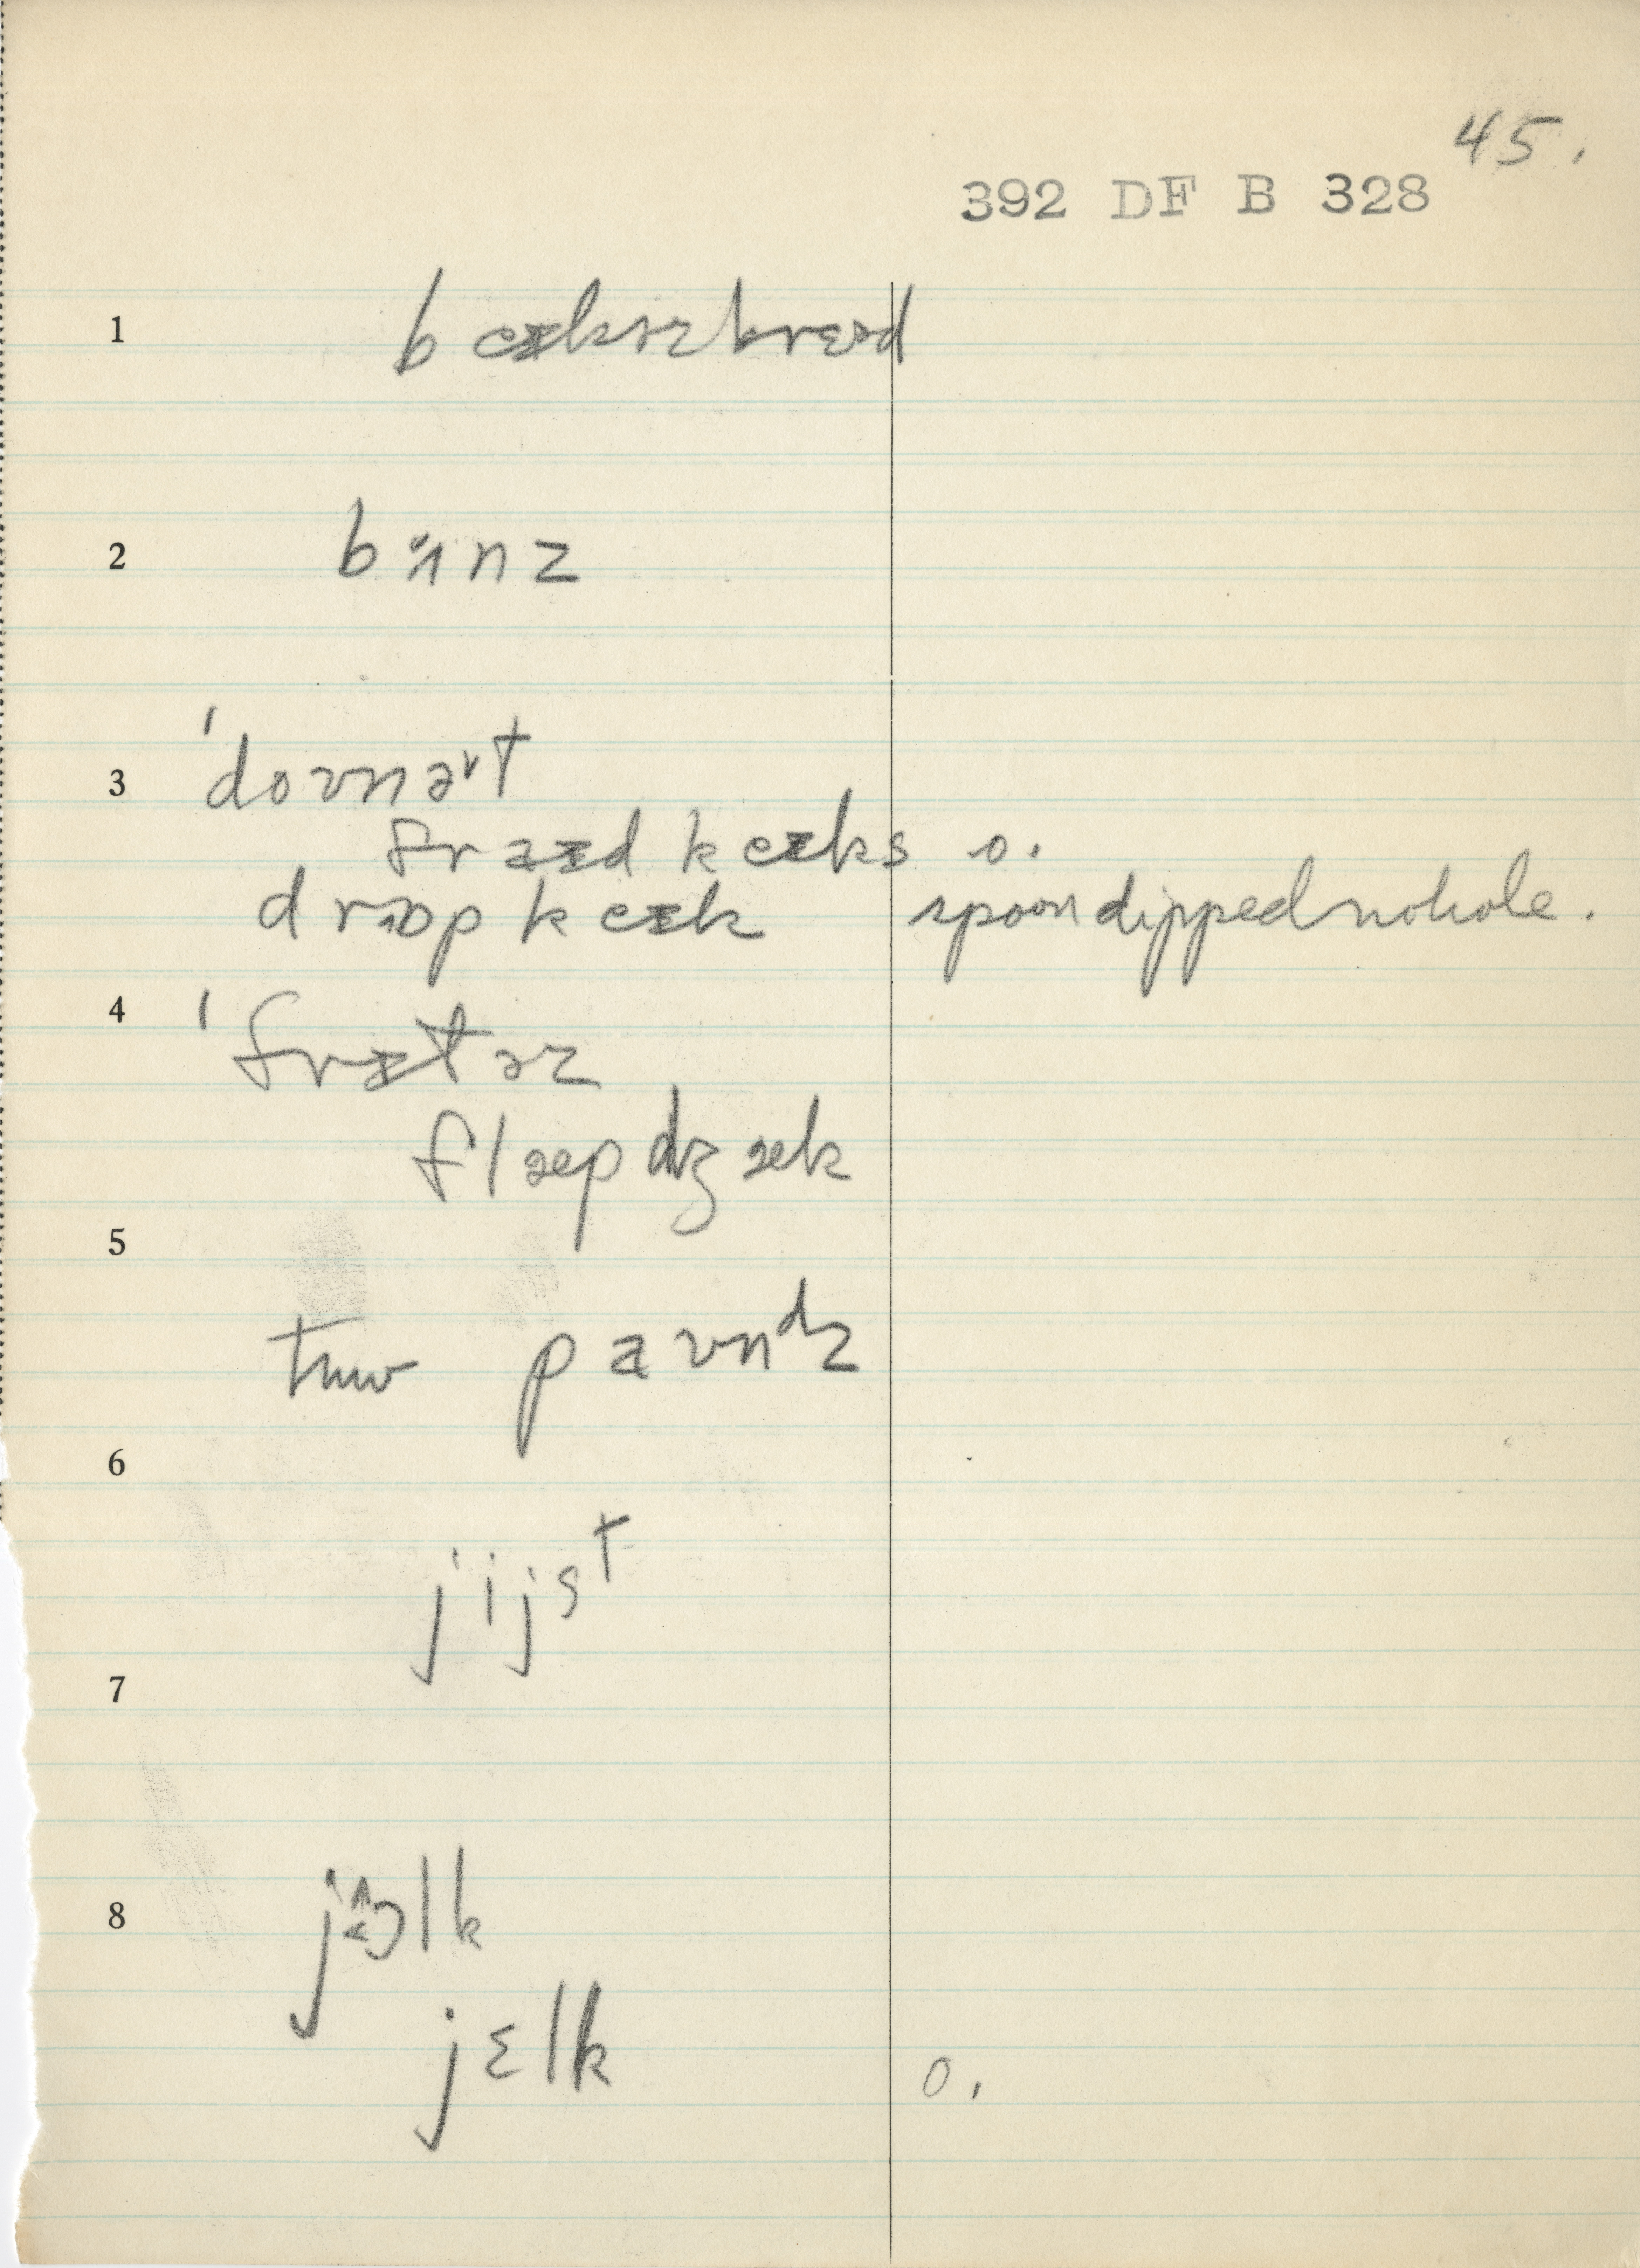 45.
392 DF B 328
1 beɪkəzbrɛəd
2 bʌnz
3 ˈdoʊnəᵛt
fraɪd keɪks o.
drɒp keɪk spoon dipped no hole.
4 ˈfrɪtəz
flæpdʒæk
5
tuw paʊnᵈz
6
jijsᵗ
7
8
jɛlk o.